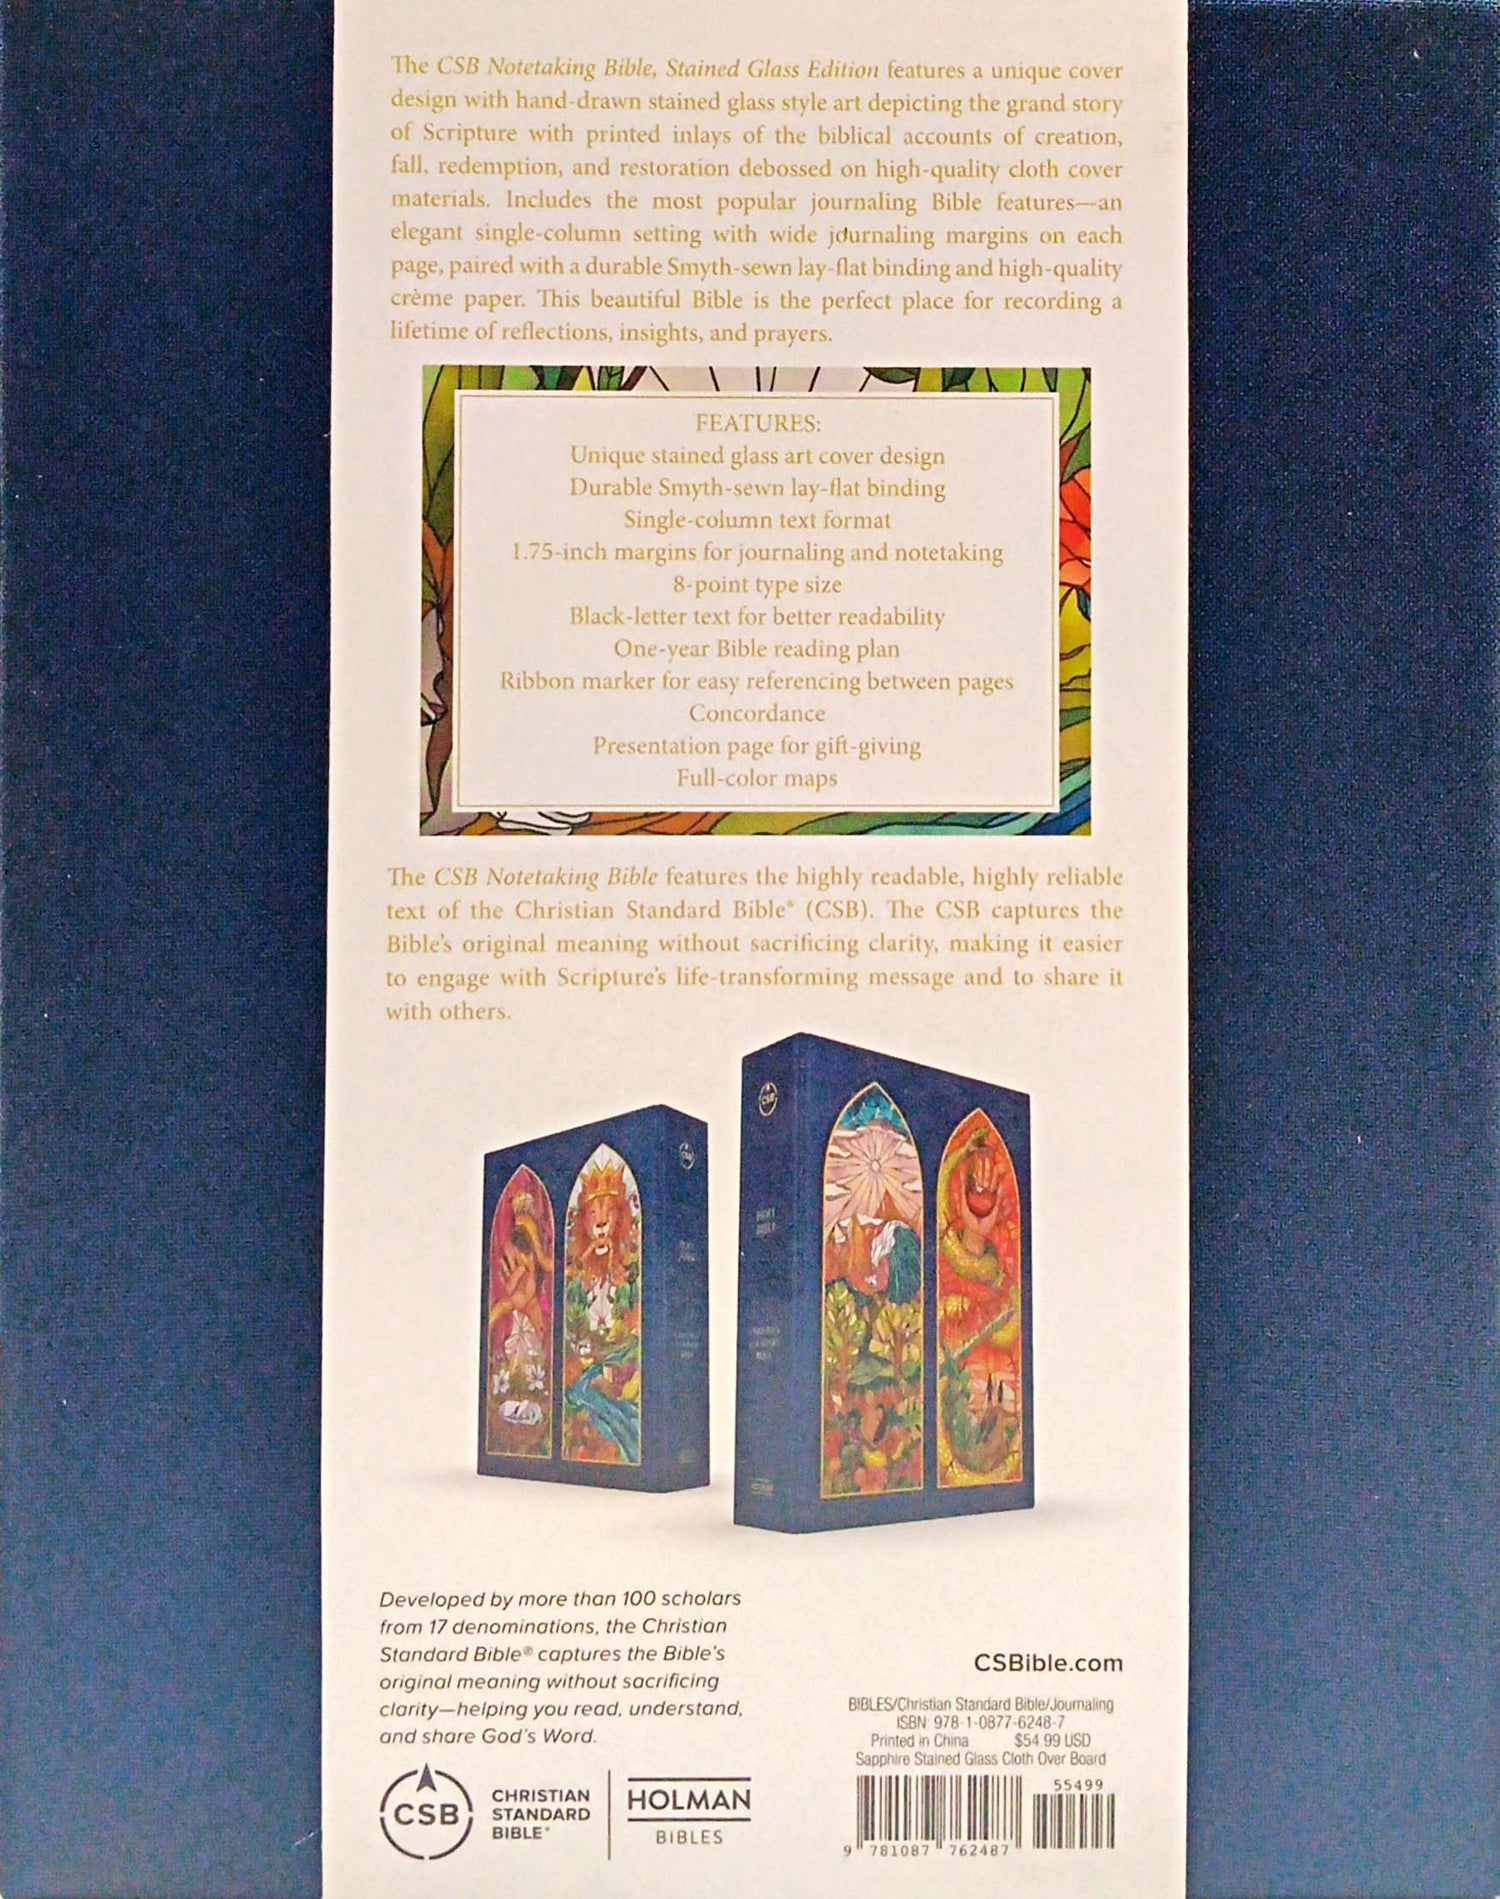 The CSB Notetaking Bible, Stained Glass Edition features a unique cover
design with hand-drawn stained glass style art depicting the grand story
of Scripture with printed inlays of the biblical accounts of creation,
fall, redemption, and restoration debossed on high-quality cloth cover
materials. Includes the most popular journaling Bible features—an
elegant single-column setting with wide journaling margins on each
page, paired with a durable Smyth-sewn lay-flat binding and high-quality
crème paper. This beautiful Bible is the perfect place for recording a
lifetime of reflections, insights, and prayers.
FEATURES:
Unique stained glass art cover design
Durable Smyth-sewn lay-flat binding
Single-column text format
1.75-inch margins for journaling and notetaking
8-point type size
Black-letter text for better readability
One-year Bible reading plan
Ribbon marker for easy referencing between pages
Concordance
Presentation page for gift-giving
Full-color maps
The CSB Notetaking Bible features the highly readable, highly reliable
text of the Christian Standard Bible® (CSB). The CSB captures the
Bible's original meaning without sacrificing clarity, making it easier
to engage with Scripture's life-transforming message and to share it
with others.
CSB
HOLY
BIBLE
Developed by more than 100 scholars
from 17 denominations, the Christian
Standard Bible® captures the Bible's
original meaning without sacrificing
clarity—helping you read, understand,
and share God's Word.
CSB
CHRISTIAN
STANDARD
BIBLE®
HOLMAN
BIBLES
CSBible.com
BIBLES/Christian Standard Bible/Journaling
ISBN: 978-1-0877-6248-7
Printed in China $54.99 USD
Sapphire Stained Glass Cloth Over Board
55499
9 781087 762487